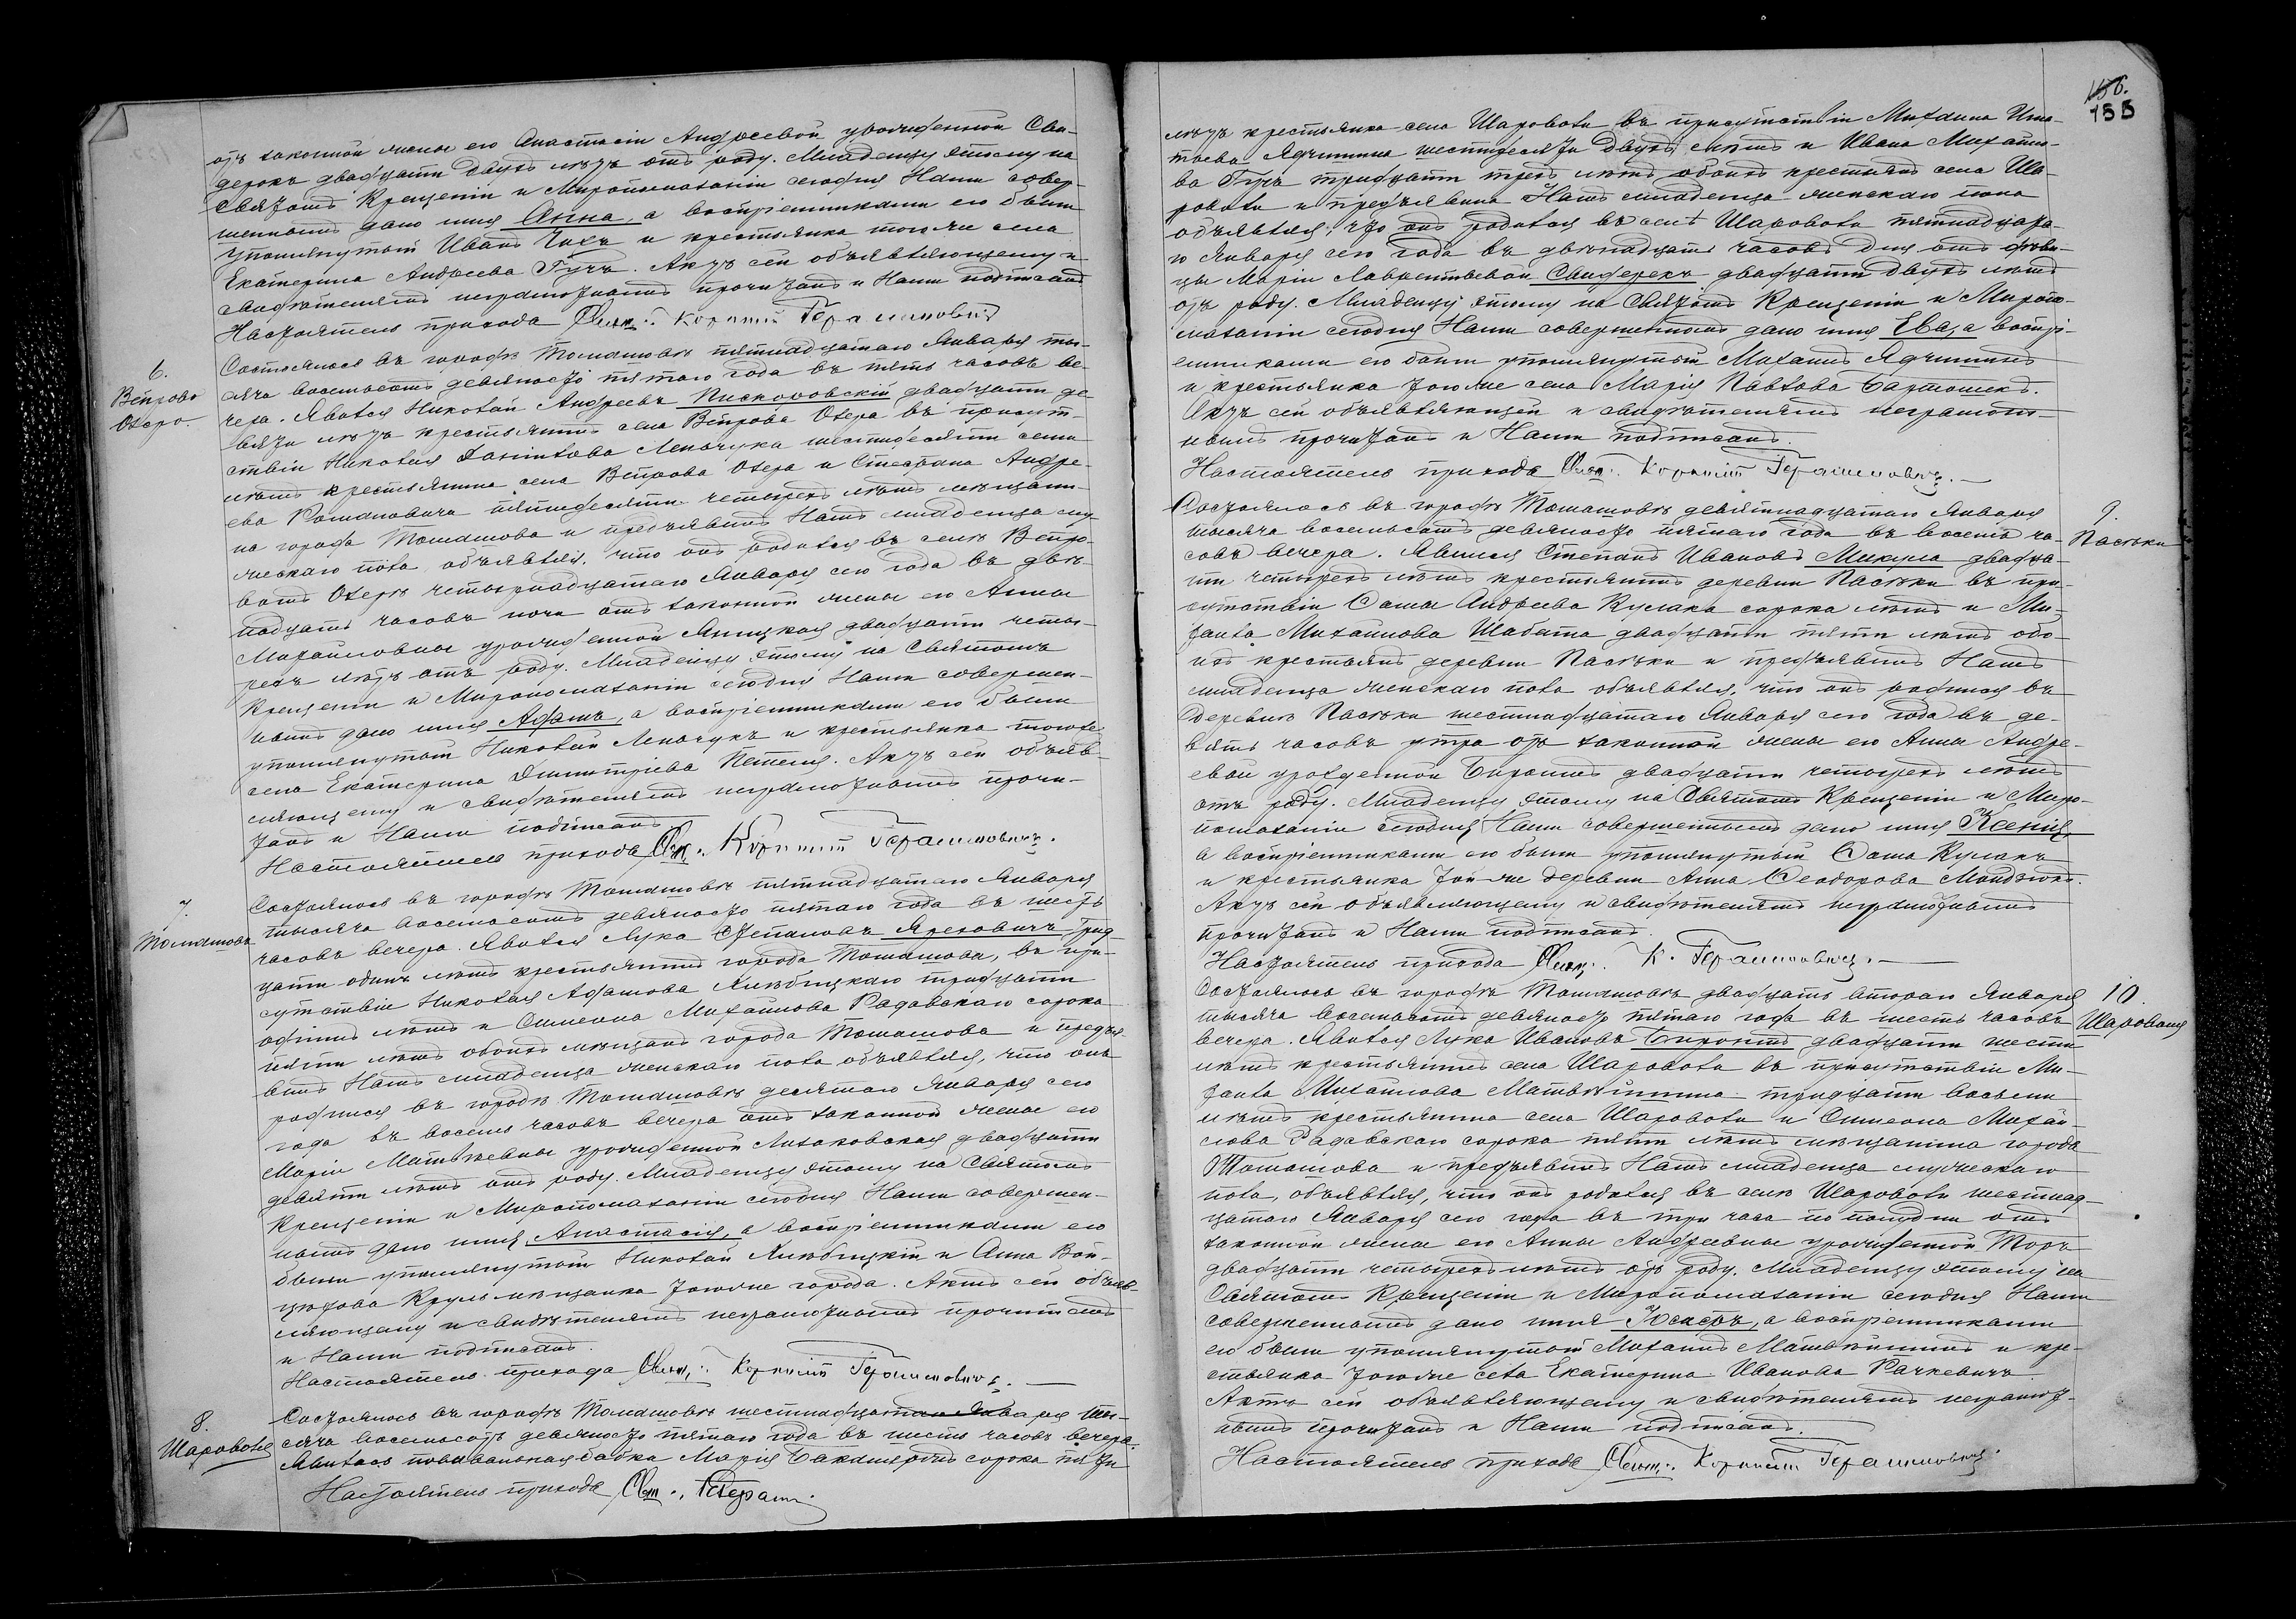 отъ законной жены его Анастасіи Андреевой урожденной Сви-
дерокъ двадцати двухъ лѣтъ отъ роду. Младенцу этому на
Святомъ Крещеніи и Миропомазаніи сегодня Нами совер-
шенномъ дано имя Анна, а воспріемниками его были
упомянутый Иванъ Чахъ и крестьянка того же села
Екатерина Андреева Гучъ. Актъ сей объявляющему и
свидѣтелямъ неграмотнымъ прочитанъ и Нами подписанъ
Настоятель прихода Свящ. Корнилій Герасимовичъ
6.
Вепрово
Озеро.
Состоялось въ городѣ Томашовѣ пятнадцатаго Января ты-
сяча восемьсотъ девяносто пятаго года въ пять часовъ ве-
чера. Явился Николай Андреевъ Пискоровскій двадцати де-
вяти лѣтъ крестьянинъ села Вепрова Озера въ присут-
ствіи Николая Даніилова Леньчука шестидесяти семи
лѣтъ крестьянина села Вепрова Озера и Стефана Андре-
ева Романовича пятидесяти четырехъ лѣтъ мѣщани-
на города Томашова и предъявилъ Намъ младенца му-
жескаго пола, объявляя, что онъ родился въ селѣ Вепро-
вомъ Озерѣ четырнадцатаго Января сего года въ двѣ-
надцать часовъ ночи отъ законной жены его Анны
Михайловны урожденной двадцати четы-
рехъ лѣтъ отъ роду. Младенцу этому на Святомъ
Крещеніи и Миропомазаніи сегодня Нами совершен-
номъ дано имя Адамъ, а воспріемниками его были
упомянутый Николай Леньчукъ и крестьянка того же
села Екатерина Димитріева Петеля. Актъ сей объяв-
ляющему и свидѣтелямъ неграмотнымъ прочи-
танъ и Нами подписанъ
Настоятель прихода Свящ. Корнилій Герасимовичъ.
7.
Томашовъ
Состоялось въ городѣ Томашовѣ пятнадцатаго Января
тысяча восемьсотъ девяносто пятаго года въ шесть
часовъ вечера. Явился Лука Степановъ Яреховичъ трид-
цати одинъ лѣтъ крестьянинъ города Томашова, въ при-
сутствіи Николая Адамова тридцати
одинъ лѣтъ и Симеона Михайлова Радавскаго сорока
пяти лѣтъ обоихъ мѣщанъ города Томашова и предъя-
вилъ Намъ младенца женскаго пола объявляя, что онъ
родился въ городѣ Томашовѣ десятаго Января сего
года въ восемь часовъ вечера отъ законной жены его
Маріи Матвѣевны урожденной Лихаковская двадцати
девяти лѣтъ отъ роду. Младенцу этому на Святомъ
Крещеніи и Миропомазаніи сегодня Нами совершен-
номъ дано имя Анастасія, а воспріемниками его
были упомянутый Николай и Анна Вой-
цѣхова Круль мѣщанка того же города. Актъ сей объяв-
ляющему и свидѣтелямъ неграмотнымъ прочитанъ
и Нами подписанъ.
Настоятель прихода Свящ. Корнилій Герасимовичъ.
8.
Шароволя
Состоялось въ городѣ Томашовѣ шестнадцатаго Января ты-
сяча восемьсотъ девяносто пятаго года въ шесть часовъ вечера.
Явилась повивальная бабка Марія сорока пяти
Настоятель прихода Свящ. К Герасим
156.
155
лѣтъ крестьянка села Шароволи въ присутствіи Михаила Игна-
тьева Ядчишина шестидесяти двухъ лѣтъ и Ивана Михайло-
ва Гучъ тридцати трехъ лѣтъ обоихъ крестьянъ села Ша-
роволи и предъявила Намъ младенца женскаго пола
объявляя, что онъ родился въ селѣ Шаровола пятнадцата-
го Января сего года въ двѣнадцать часовъ дня отъ дѣви-
цы Маріи Лаврентьевой Свидерекъ двадцати двухъ лѣтъ
отъ роду. Младенцу этому на Святомъ Крещеніи и Миропо-
мазаніи сегодня Нами совершенномъ дано имя Ева, а воспрі-
емниками его были упомянутый Михаилъ Ядчишинъ
и крестьянка того же села Марія Павлова Бартошекъ.
Актъ сей объявляющей и свидѣтелямъ неграмот-
нымъ прочитанъ и Нами подписанъ.
Настоятель прихода Свящ. Корнилій Герасимовичъ.
9.
Пасѣки
Состоялось въ городѣ Томашовѣ девятнадцатаго Января
тысяча восемьсотъ девяносто пятаго года въ восемь ча-
совъ вечера. Явился Степанъ Ивановъ Микула двадца-
ти четырехъ лѣтъ крестьянинъ деревни Пасѣки въ при-
сутствіи Ѳомы Андреева Кулака сорока лѣтъ и Ми-
хаила Михайлова Шабата двадцати пяти лѣтъ обо-
ихъ крестьянъ деревни Пасѣки и предъявилъ Намъ
младенца женскаго пола объявляя, что онъ родился въ
деревнѣ Пасѣки шестнадцатаго Января сего года въ де-
вять часовъ утра отъ законной жены его Анны Андре-
евой урожденной двадцати четырехъ лѣтъ
отъ роду. Младенцу этому на Святомъ Крещеніи и Миро-
помазаніи сегодня Нами совершенномъ дано имя Ксенія
а воспріемниками его были упомянутый Ѳома Кулакъ
и крестьянка той же деревни Анна Ѳеодорова Мандзюкъ.
Актъ сей объявляющему и свидѣтелямъ неграмотнымъ
прочитанъ и Нами подписанъ.
Настоятель прихода Свящ. К. Герасимовичъ.
10.
Шароволя
Состоялось въ городѣ Томашовѣ двадцать втораго Января
тысяча восемьсотъ девяносто пятаго года въ шесть часовъ
вечера. Явился Лука Ивановъ двадцати шести
лѣтъ крестьянинъ села Шаровола въ присутствіи Ми-
хаила Михайлова Матвѣишина тридцати восьми
лѣтъ крестьянина села Шароволи и Симеона Михай-
лова Радавскаго сорока пяти лѣтъ мѣщанина города
Томашова и предъявилъ Намъ младенца мужескаго
пола, объявляя, что онъ родился въ селѣ Шаровола шестнад-
цатаго Января сего года въ три часа по полудни отъ
законной жены его Анны Андреевны урожденной Торъ
двадцати четырехъ лѣтъ отъ роду. Младенцу этому на
Святомъ Крещеніи и Миропомазаніи сегодня Нами
совершенномъ дано имя Іосифъ, а воспріемниками
его были упомянутый Михаилъ Матвѣишинъ и кре-
стьянка того же села Екатерина Иванова Рачкевичъ.
Актъ сей объявляющему и свидѣтелямъ неграмот-
нымъ прочитанъ и Нами подписанъ.
Настоятель прихода Свящ. Корнилій Герасимовичъ.